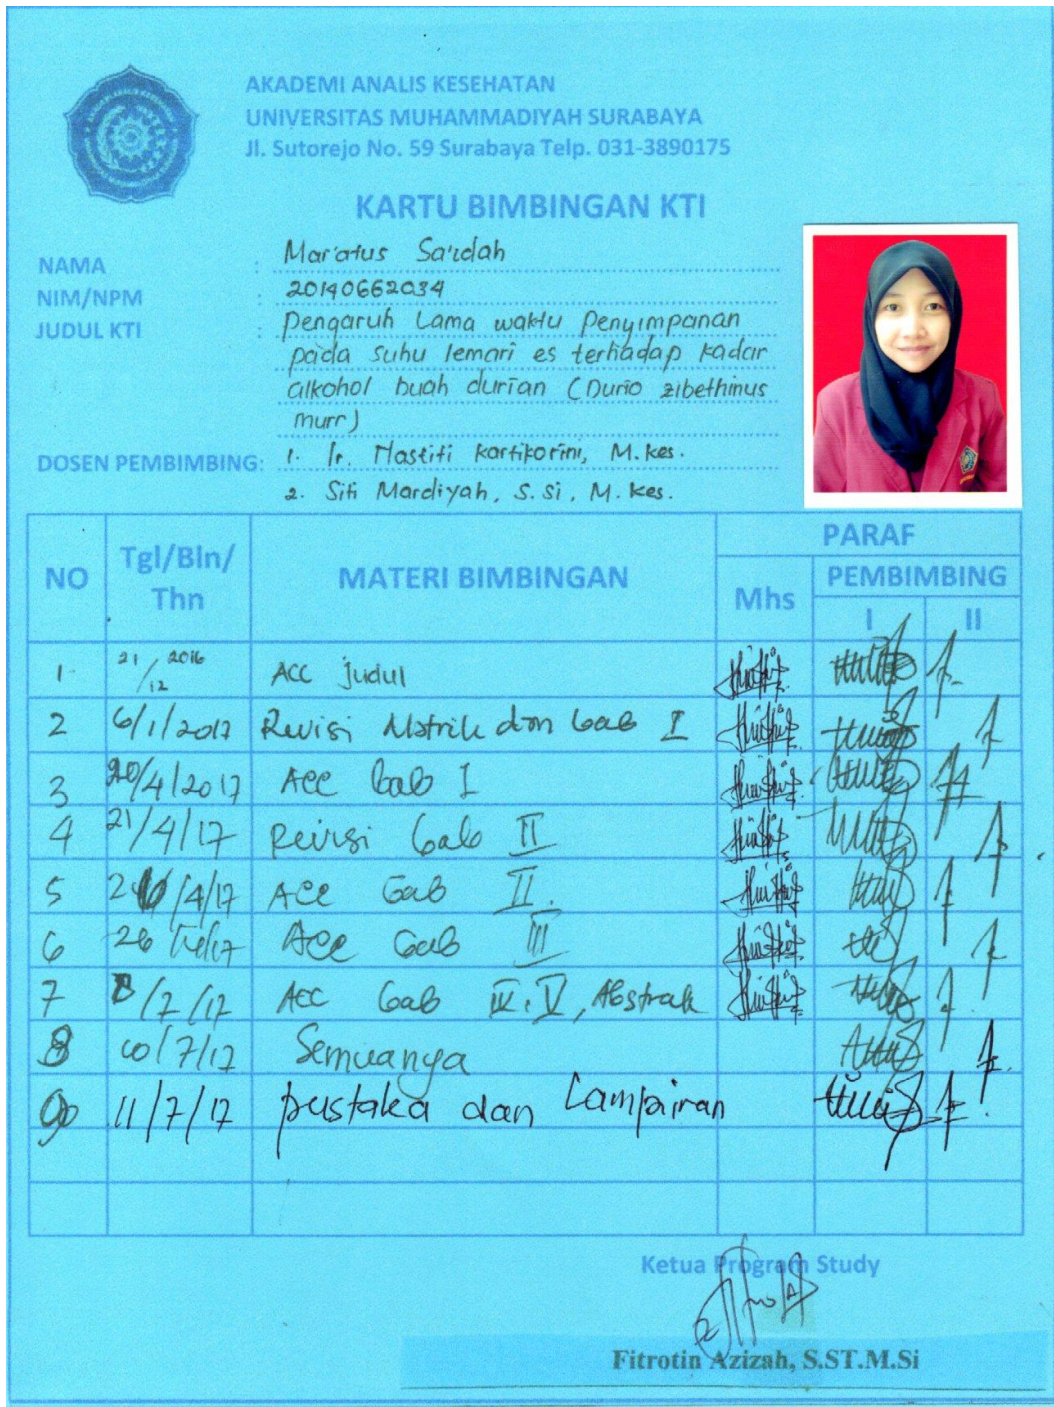 AKADEMI ANALIS KESEHATAN
UNIVERSITAS MUHAMMADIYAH SURABAYA
Jl. Sutorejo No. 59 Surabaya Telp. 031-3890175
KARTU BIMBINGAN KTI
NAMA : Mar'atus Sa'idah
NIM/NPM : 20140662034
JUDUL KTI : Pengaruh Lama waktu Penyimpanan
pada suhu lemari es terhadap kadar
alkohol buah durian (Durio zibethinus
murr)
DOSEN PEMBIMBING: 1. Ir. Nastiti Kartikorini, M.kes.
2. Siti Mardiyah, S.si, M.kes.
PARAF
NO Tgl/Bln/ MATERI BIMBINGAN Mhs PEMBIMBING
Thn I II
1. 21/12 2016 ACC judul
2 6/1/2017 Revisi Matrik dan bab I
3 20/4/2017 Acc bab I
4 21/4/17 Revisi bab II
5 /4/17 Acc bab II.
6 26 /17 Acc bab III
7 /7/17 Acc bab IV, V, Abstrak
8 10/7/17 Semuanya
9 11/7/17 pustaka dan Lampiran
Ketua Program Study
Fitrotin Azizah, S.ST.M.Si